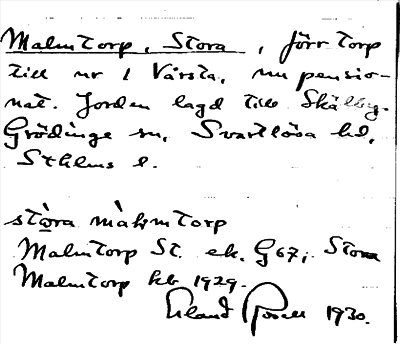 Malmtorp, Stora, förr torp
till nr 1 Vårsta, nu pensio-
nat. Jorden lagd till Skälby.
Grödinge sn, Svartlösa hd,
Sthlms l.
stòra màlmtorp
Malmtorp St. ek. G67; Stora
Malmtorp kb 1929.
Erland 1930.